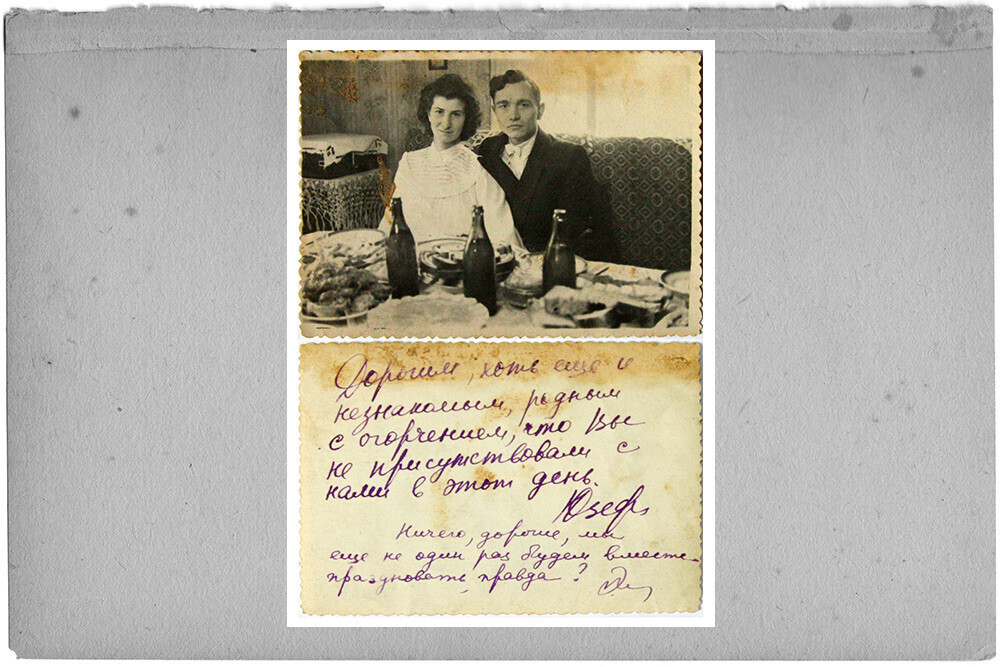 Дорогим, хоть еще и
незнакомым, родным
с огорчением, что Вы
не присутствовали с
нами в этот день.
Юзеф
Ничего, дорогие, мы
еще не один раз будем вместе
праздновать, правда?